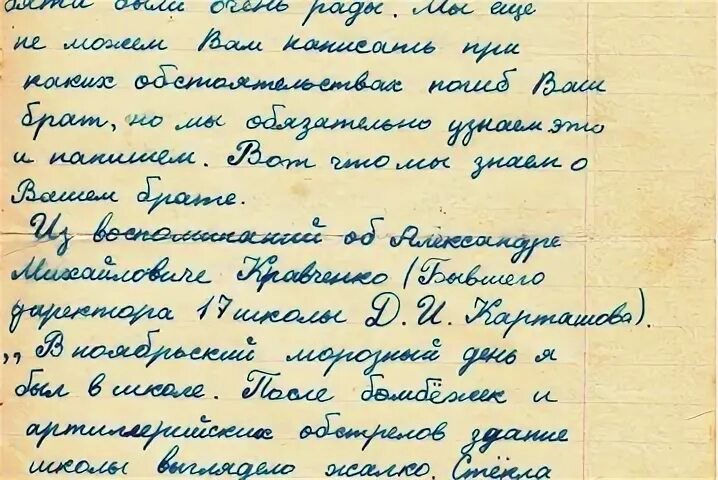 бята были очень рады. Мы еще
не можем Вам написать при
каких обстоятельствах погиб Ваш
брат, но мы обязательно узнаем это
и напишем. Вот что мы знаем о
Вашем брате.
Из воспоминаний об Александре
Михайловиче Кравченко (Бывшего
директора 17 школы Д. И. Карташова).
„ В ноябрьский морозный день я
был в школе. После бомбёжек и
артиллерийских обстрелов здание
школы выглядело жалко. Стёкла